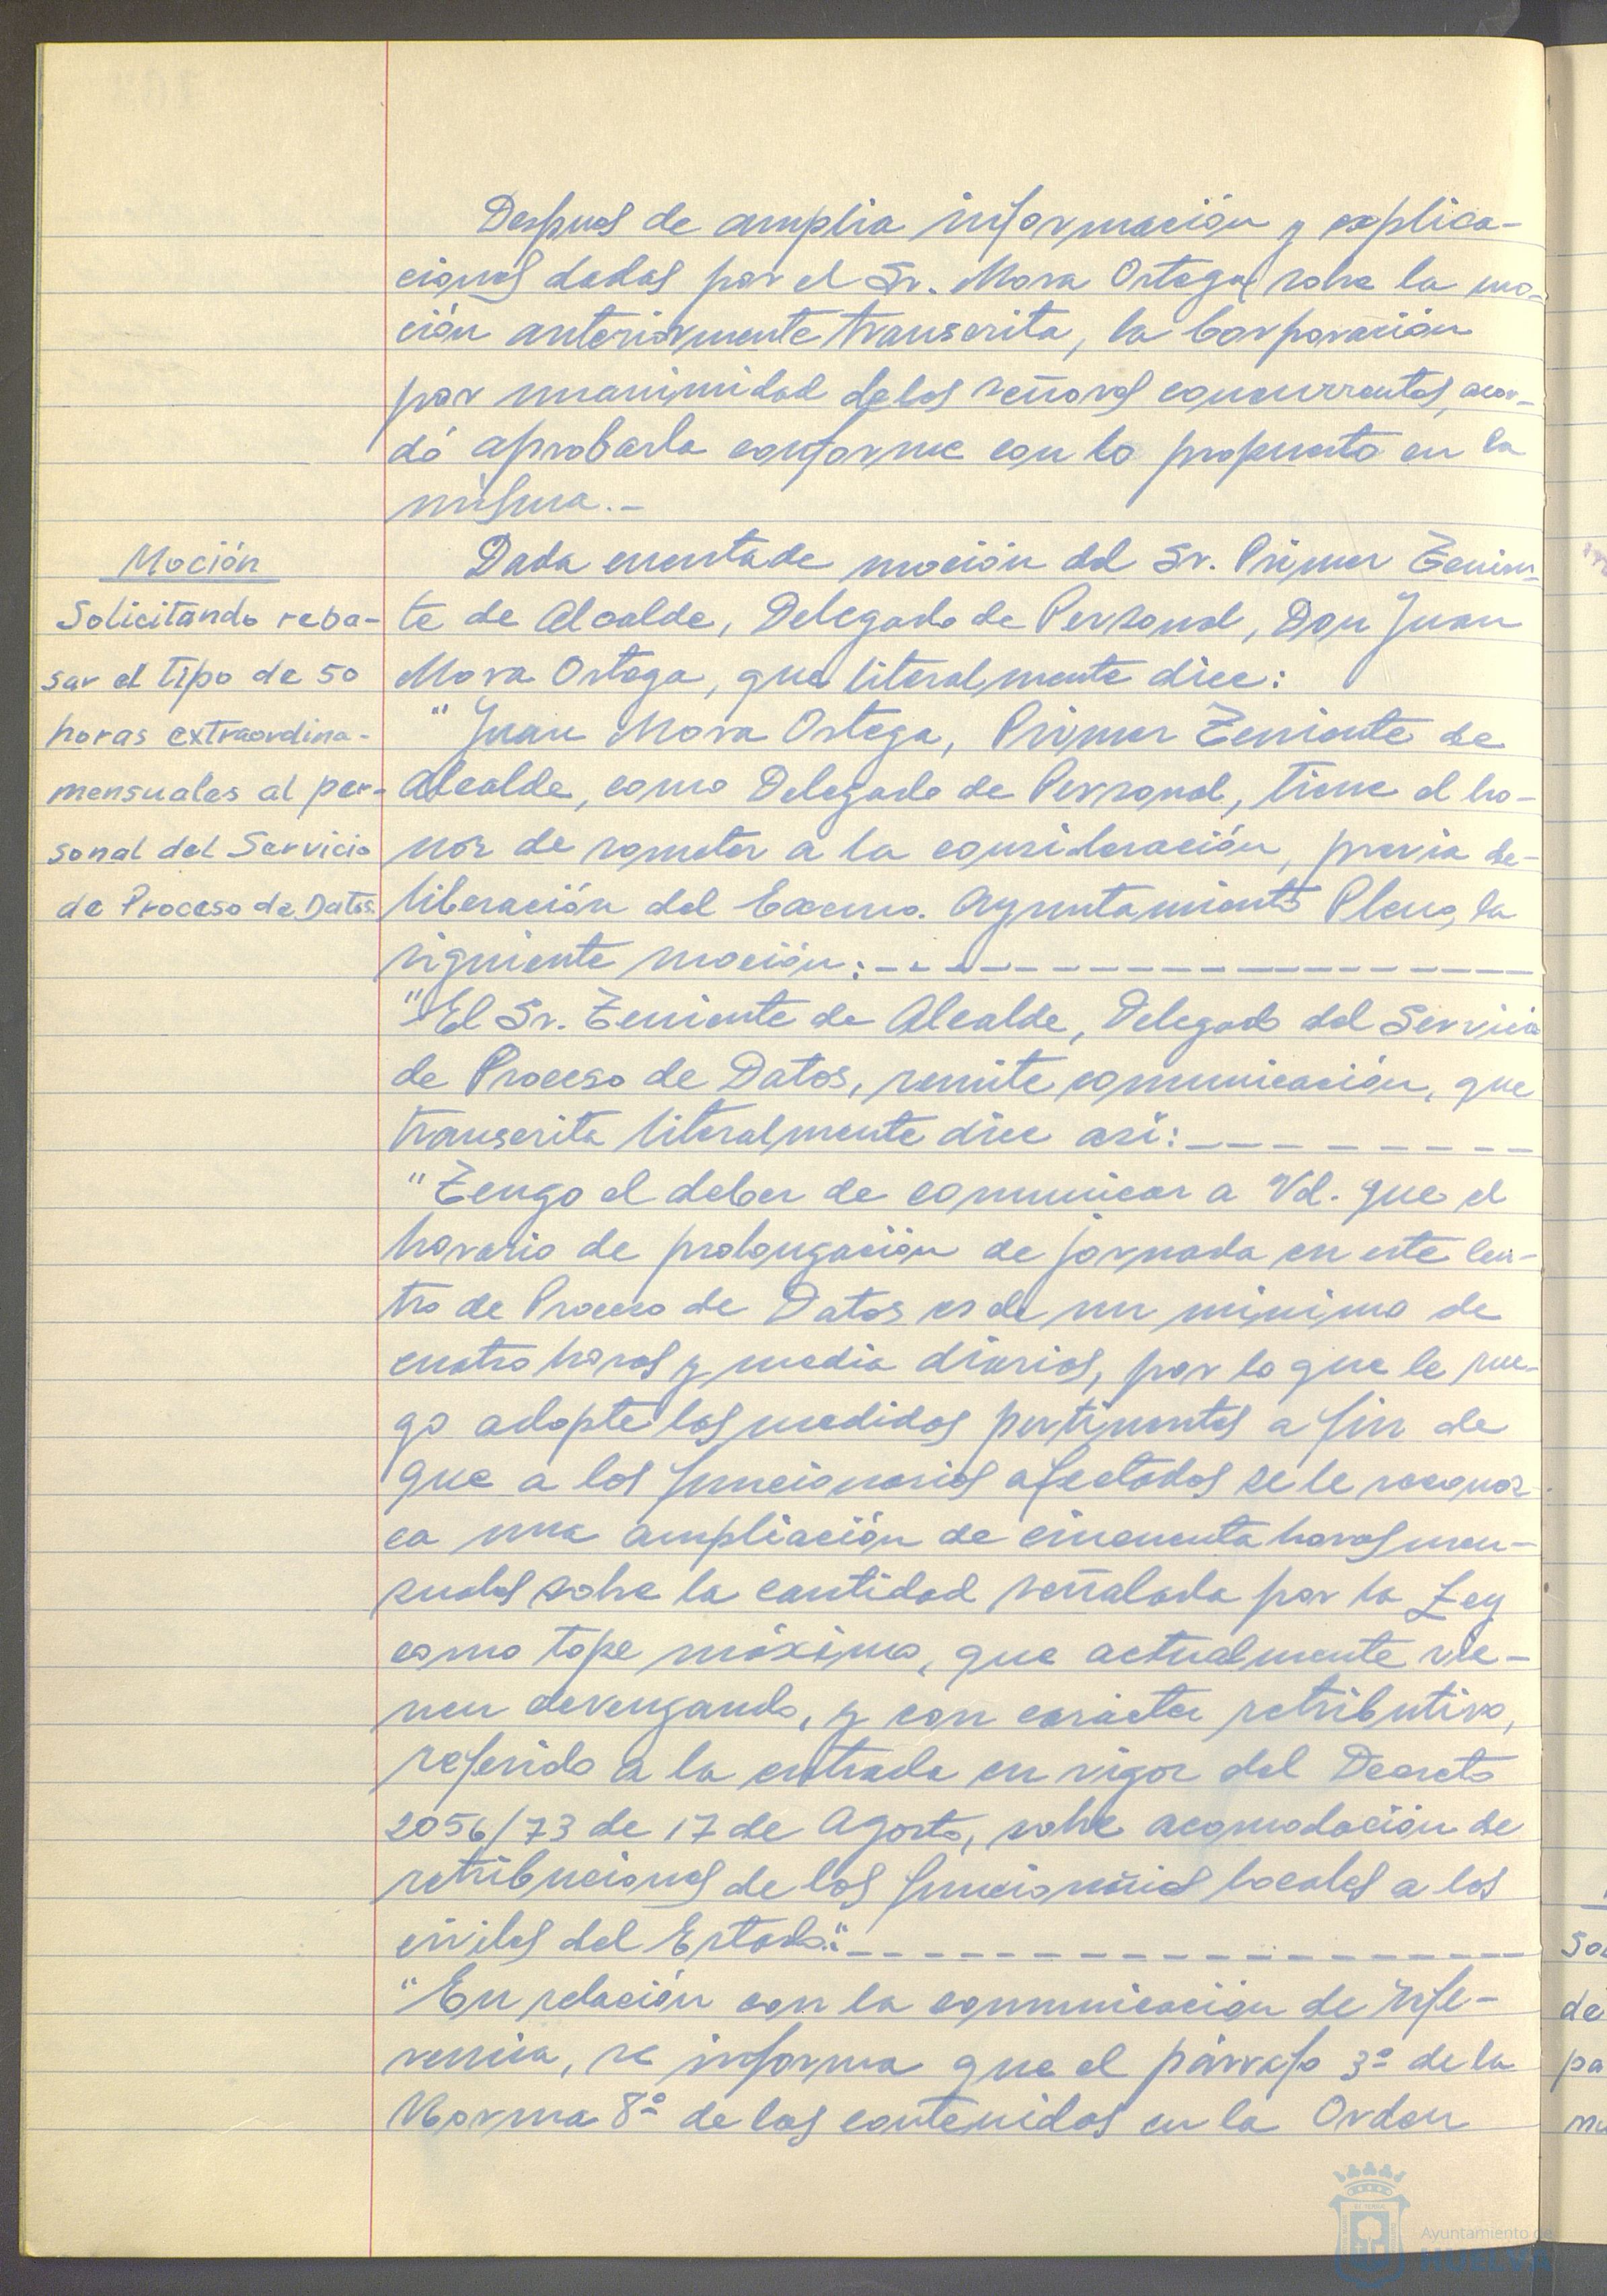 Despues de amplia información y explica-
ciones dadas por el Sr. Mora Ortega sobre la mo-
ción anteriormente transcrita, la Corporación
por unanimidad de los señores concurrentes, acor-
dó aprobarla conforme con lo propuesto en la
misma.-
Moción
Solicitando reba-
sar el tipo de 50
horas extraordina-
mensuales al per-
sonal del Servicio
de Proceso de Datos.
Dada cuenta de moción del Sr. Primer Tenien-
te de Alcalde, Delegado de Personal, Don Juan
Mora Ortega, que literalmente dice:
"Juan Mora Ortega, Primer Teniente de
Alcalde, como Delegado de Personal, tiene el ho-
nor de someter a la consideración, previa de-
liberación del Excmo. Ayuntamiento Pleno, la
siguiente moción:- - - - - - - - - - - - - - - -
"El Sr. Teniente de Alcalde, Delegado del Servicio
de Proceso de Datos, remite comunicación, que
transcrita literalmente dice así:- - - - - - - -
"Tengo el deber de comunicar a Vd. que el
horario de prolongación de jornada en este Cen-
tro de Proceso de Datos es de un minimo de
cuatro horas y media diarias, por lo que le rue-
go adopte las medidas pertinentes a fin de
que a los funcionarios afectados se le reconoz-
ca una ampliación de cincuenta horas men-
suales sobre la cantidad señalada por la Ley
como tope máximo, que actualmente vie-
nen devengando, y con carácter retributivo,
referido a la entrada en vigor del Decreto
2056/73 de 17 de Agosto, sobre acomodación de
retribuciones de los funcionarios locales a los
civiles del Estado."- - - - - - - - - - - - - - -
"En relación con la comunicación de refe-
rencia, se informa que el párrafo 3º de la
Norma 8ª de las contenidas en la Orden
Ayuntamiento de
HUELVA